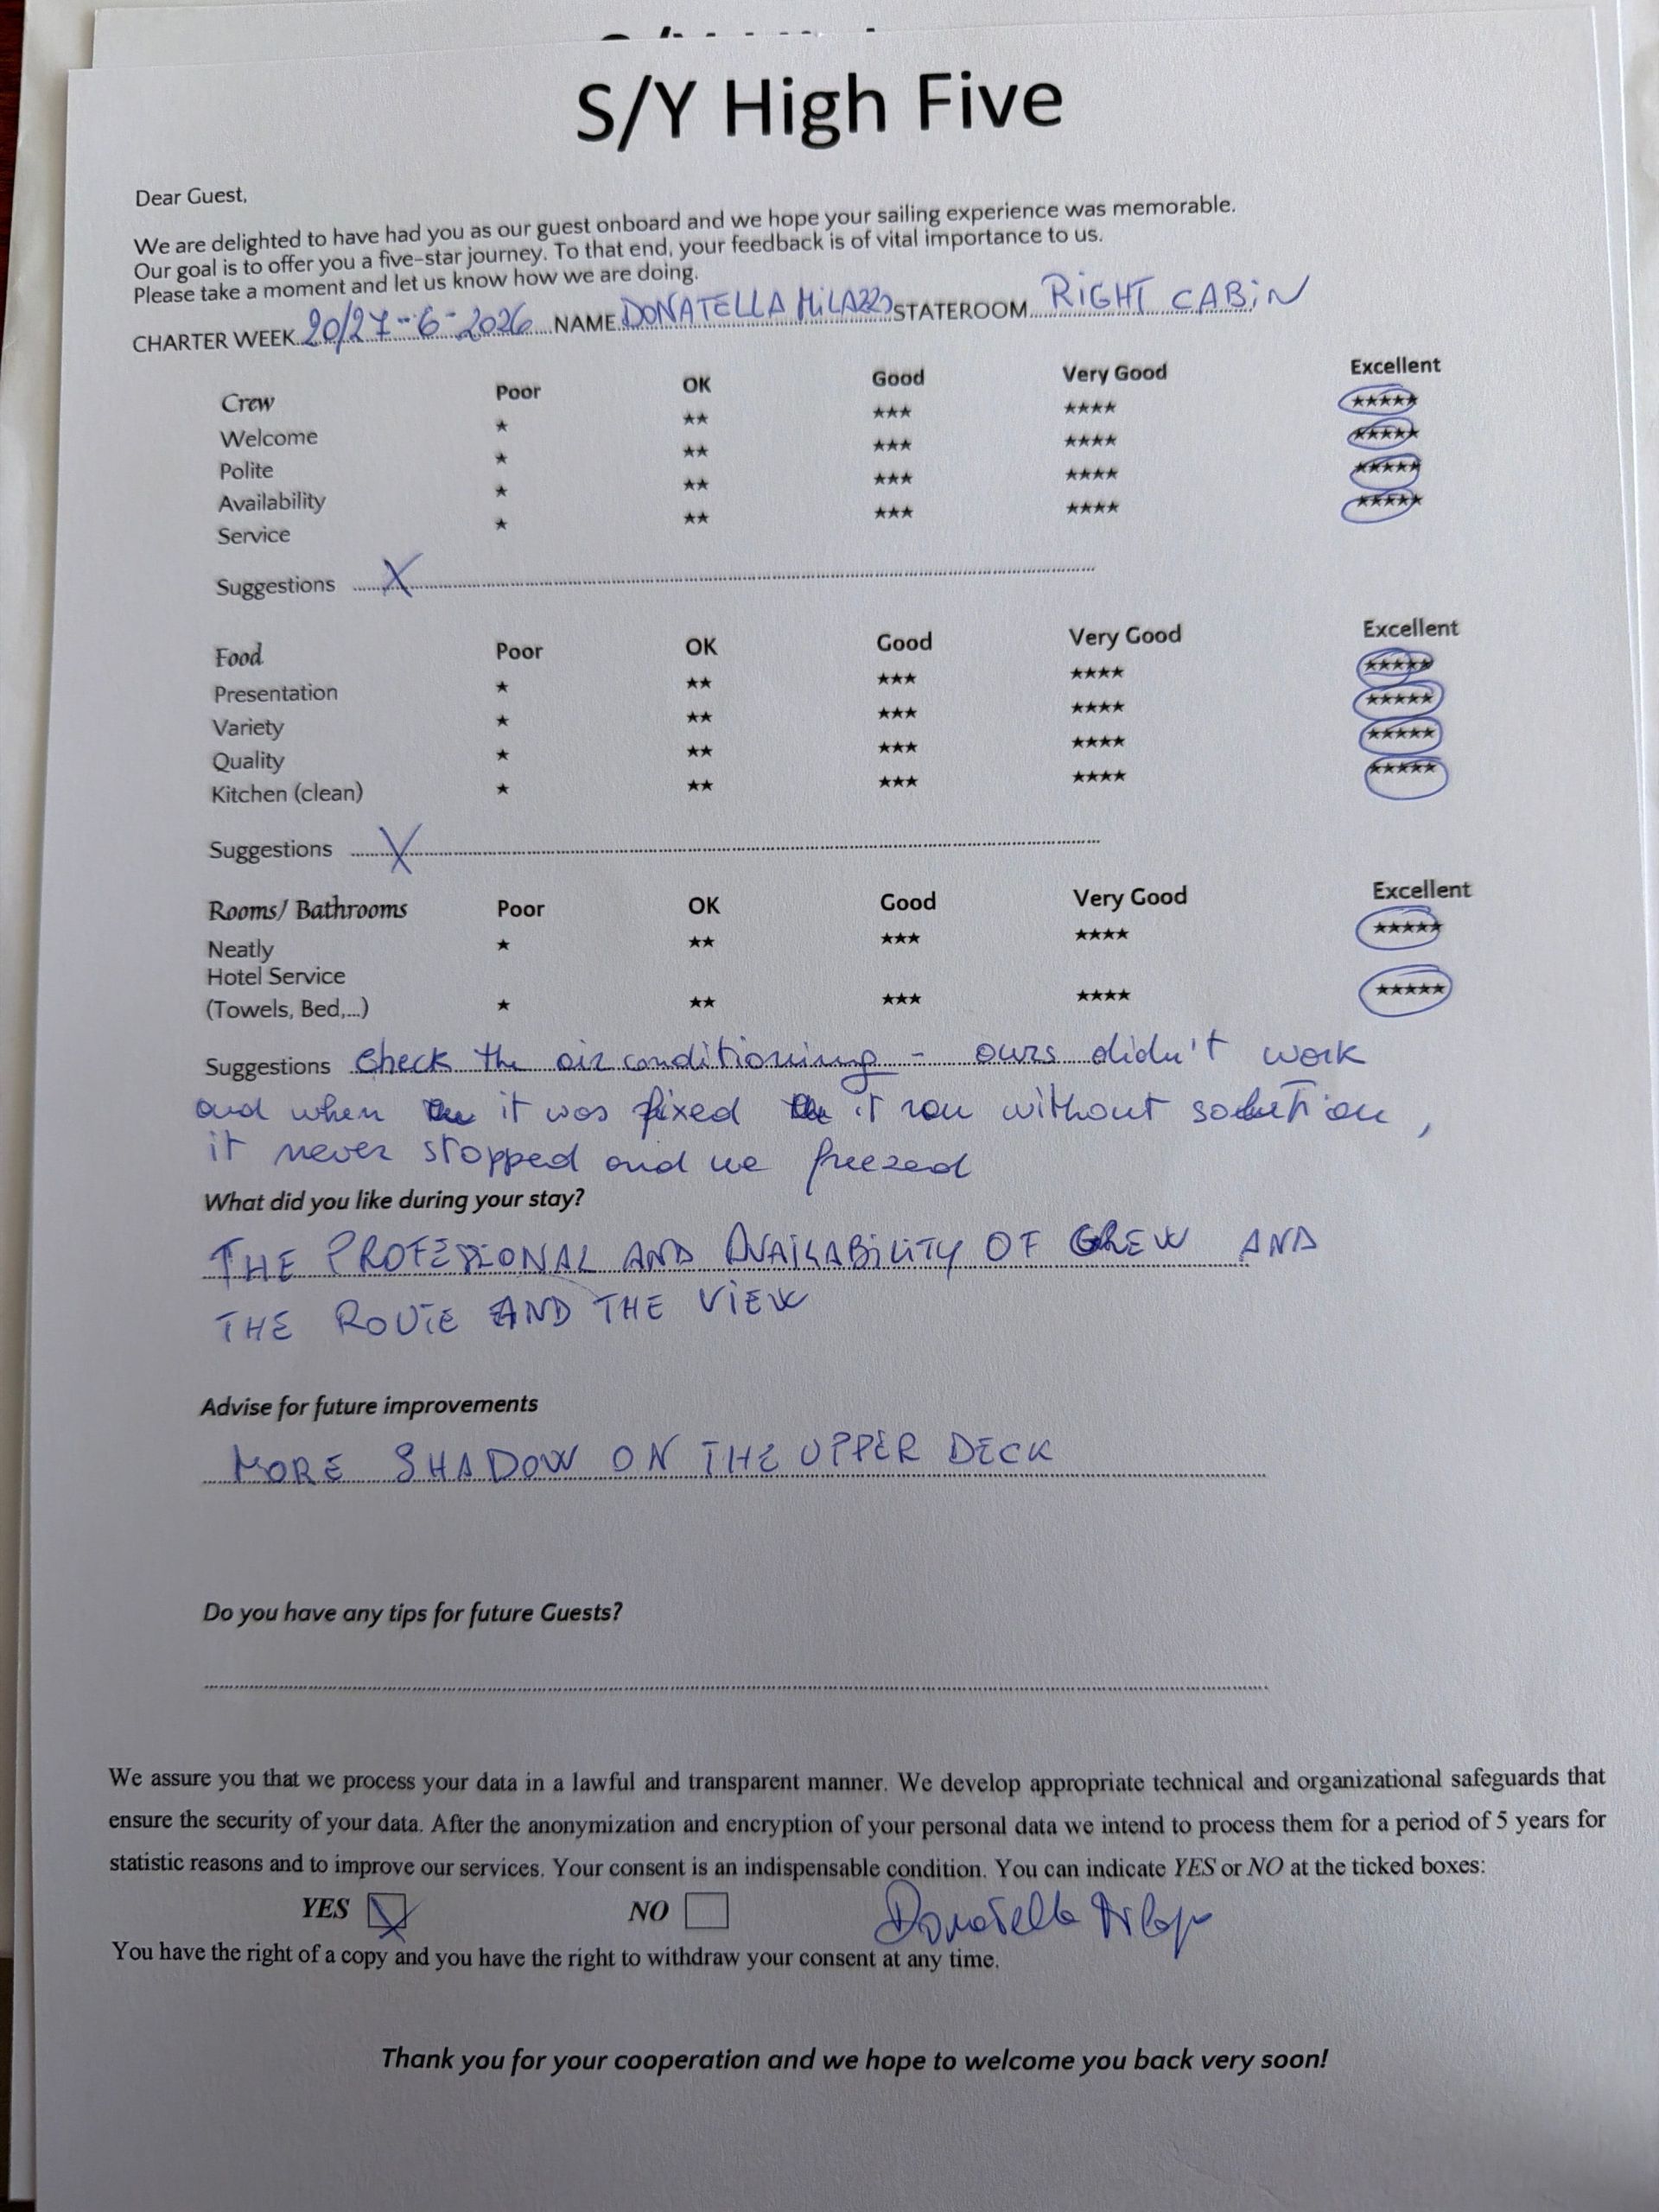 S/Y High Five
Dear Guest,
We are delighted to have had you as our guest onboard and we hope your sailing experience was memorable.
Our goal is to offer you a five-star journey. To that end, your feedback is of vital importance to us.
Please take a moment and let us know how we are doing.
CHARTER WEEK 20/27-6-2026 NAME DONATELLA MiLAZZO STATEROOM RiGHT CABiN
Crew Poor OK Good Very Good Excellent
Welcome ★ ★★ ★★★ ★★★★ ★★★★★
Polite ★ ★★ ★★★ ★★★★ ★★★★★
Availability ★ ★★ ★★★ ★★★★ ★★★★★
Service ★ ★★ ★★★ ★★★★ ★★★★★
Suggestions X
Food Poor OK Good Very Good Excellent
Presentation ★ ★★ ★★★ ★★★★ ★★★★★
Variety ★ ★★ ★★★ ★★★★ ★★★★★
Quality ★ ★★ ★★★ ★★★★ ★★★★★
Kitchen (clean) ★ ★★ ★★★ ★★★★ ★★★★★
Suggestions X
Rooms/ Bathrooms Poor OK Good Very Good Excellent
Neatly ★ ★★ ★★★ ★★★★ ★★★★★
Hotel Service
(Towels, Bed,...) ★ ★★ ★★★ ★★★★ ★★★★★
Suggestions check the air conditioning - ours didn't work
and when it was fixed it ran without solution,
it never stopped and we freezed
What did you like during your stay?
THE PROFESSIONAL AND AVAiLABiLiTY OF CREW AND
THE ROUTE AND THE ViEW
Advise for future improvements
MORE SHADOW ON THE UPPER DECK
Do you have any tips for future Guests?
We assure you that we process your data in a lawful and transparent manner. We develop appropriate technical and organizational safeguards that
ensure the security of your data. After the anonymization and encryption of your personal data we intend to process them for a period of 5 years for
statistic reasons and to improve our services. Your consent is an indispensable condition. You can indicate YES or NO at the ticked boxes:
YES NO Donatella Milazzo
You have the right of a copy and you have the right to withdraw your consent at any time.
Thank you for your cooperation and we hope to welcome you back very soon!